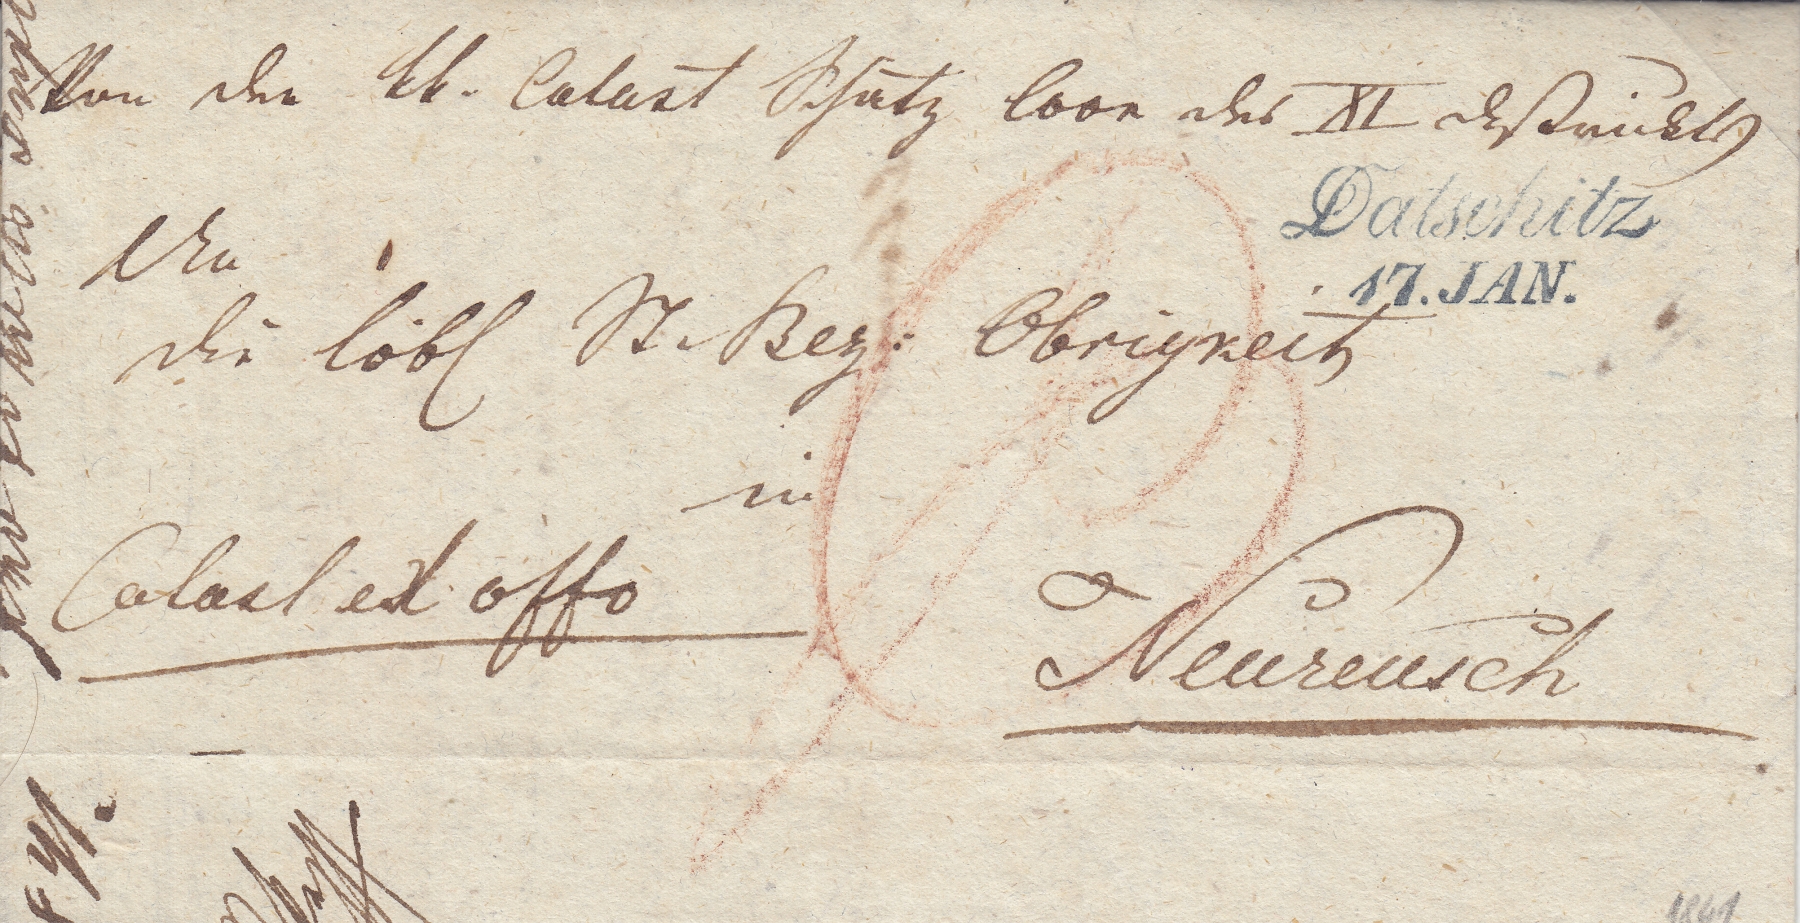 Von der kk. Catast Schatz Coon des XI Distrikts
Datschitz
17. JAN.
An
die löbl St. Bez: Obrigkeit
in
Catast ex offo
Neureusch